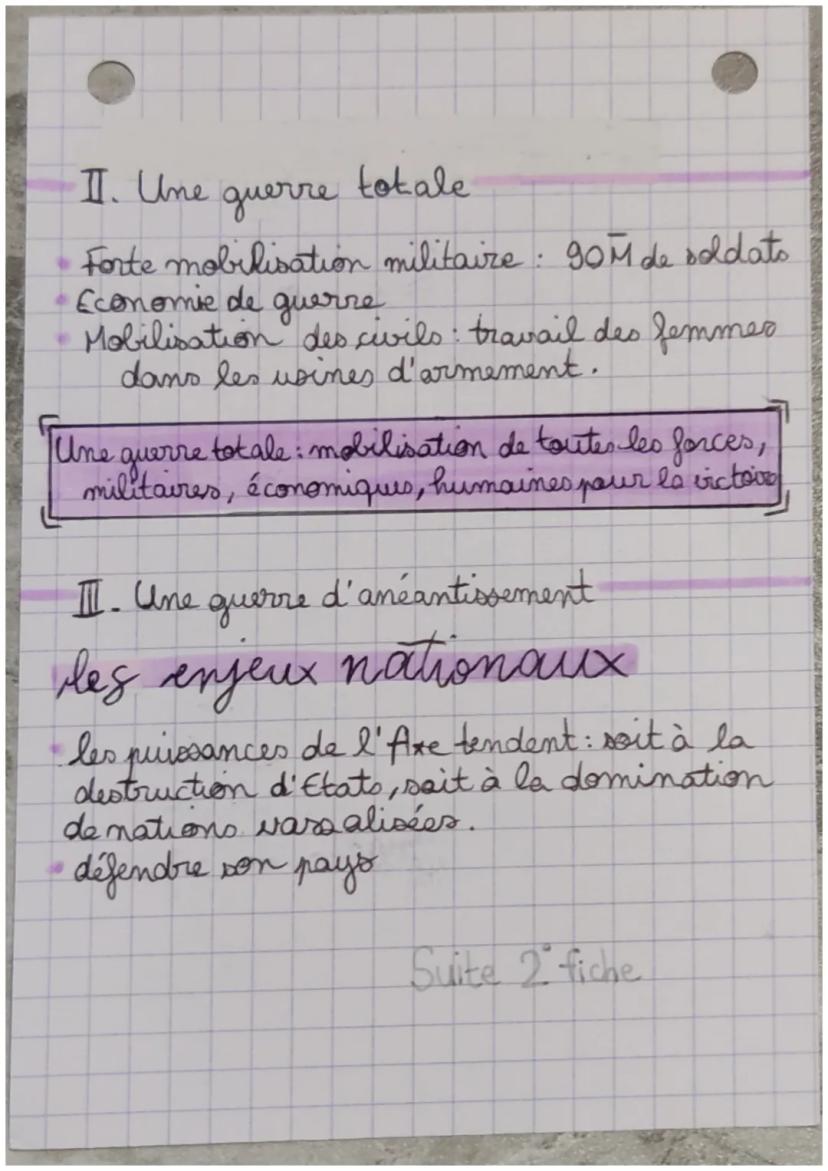 II. Une guerre totale
• Forte mobilisation militaire : 90M̄ de soldats
• Economie de guerre
• Mobilisation des civils : travail des femmes
dans les usines d'armement.
Une guerre totale : mobilisation de toutes les forces,
militaires, économiques, humaines pour la victoire
III - Une guerre d'anéantissement
les enjeux nationaux
• les puissances de l'Axe tendent : soit à la
destruction d'Etats, soit à la domination
de nations vassalisées.
• défendre son pays
Suite 2° fiche